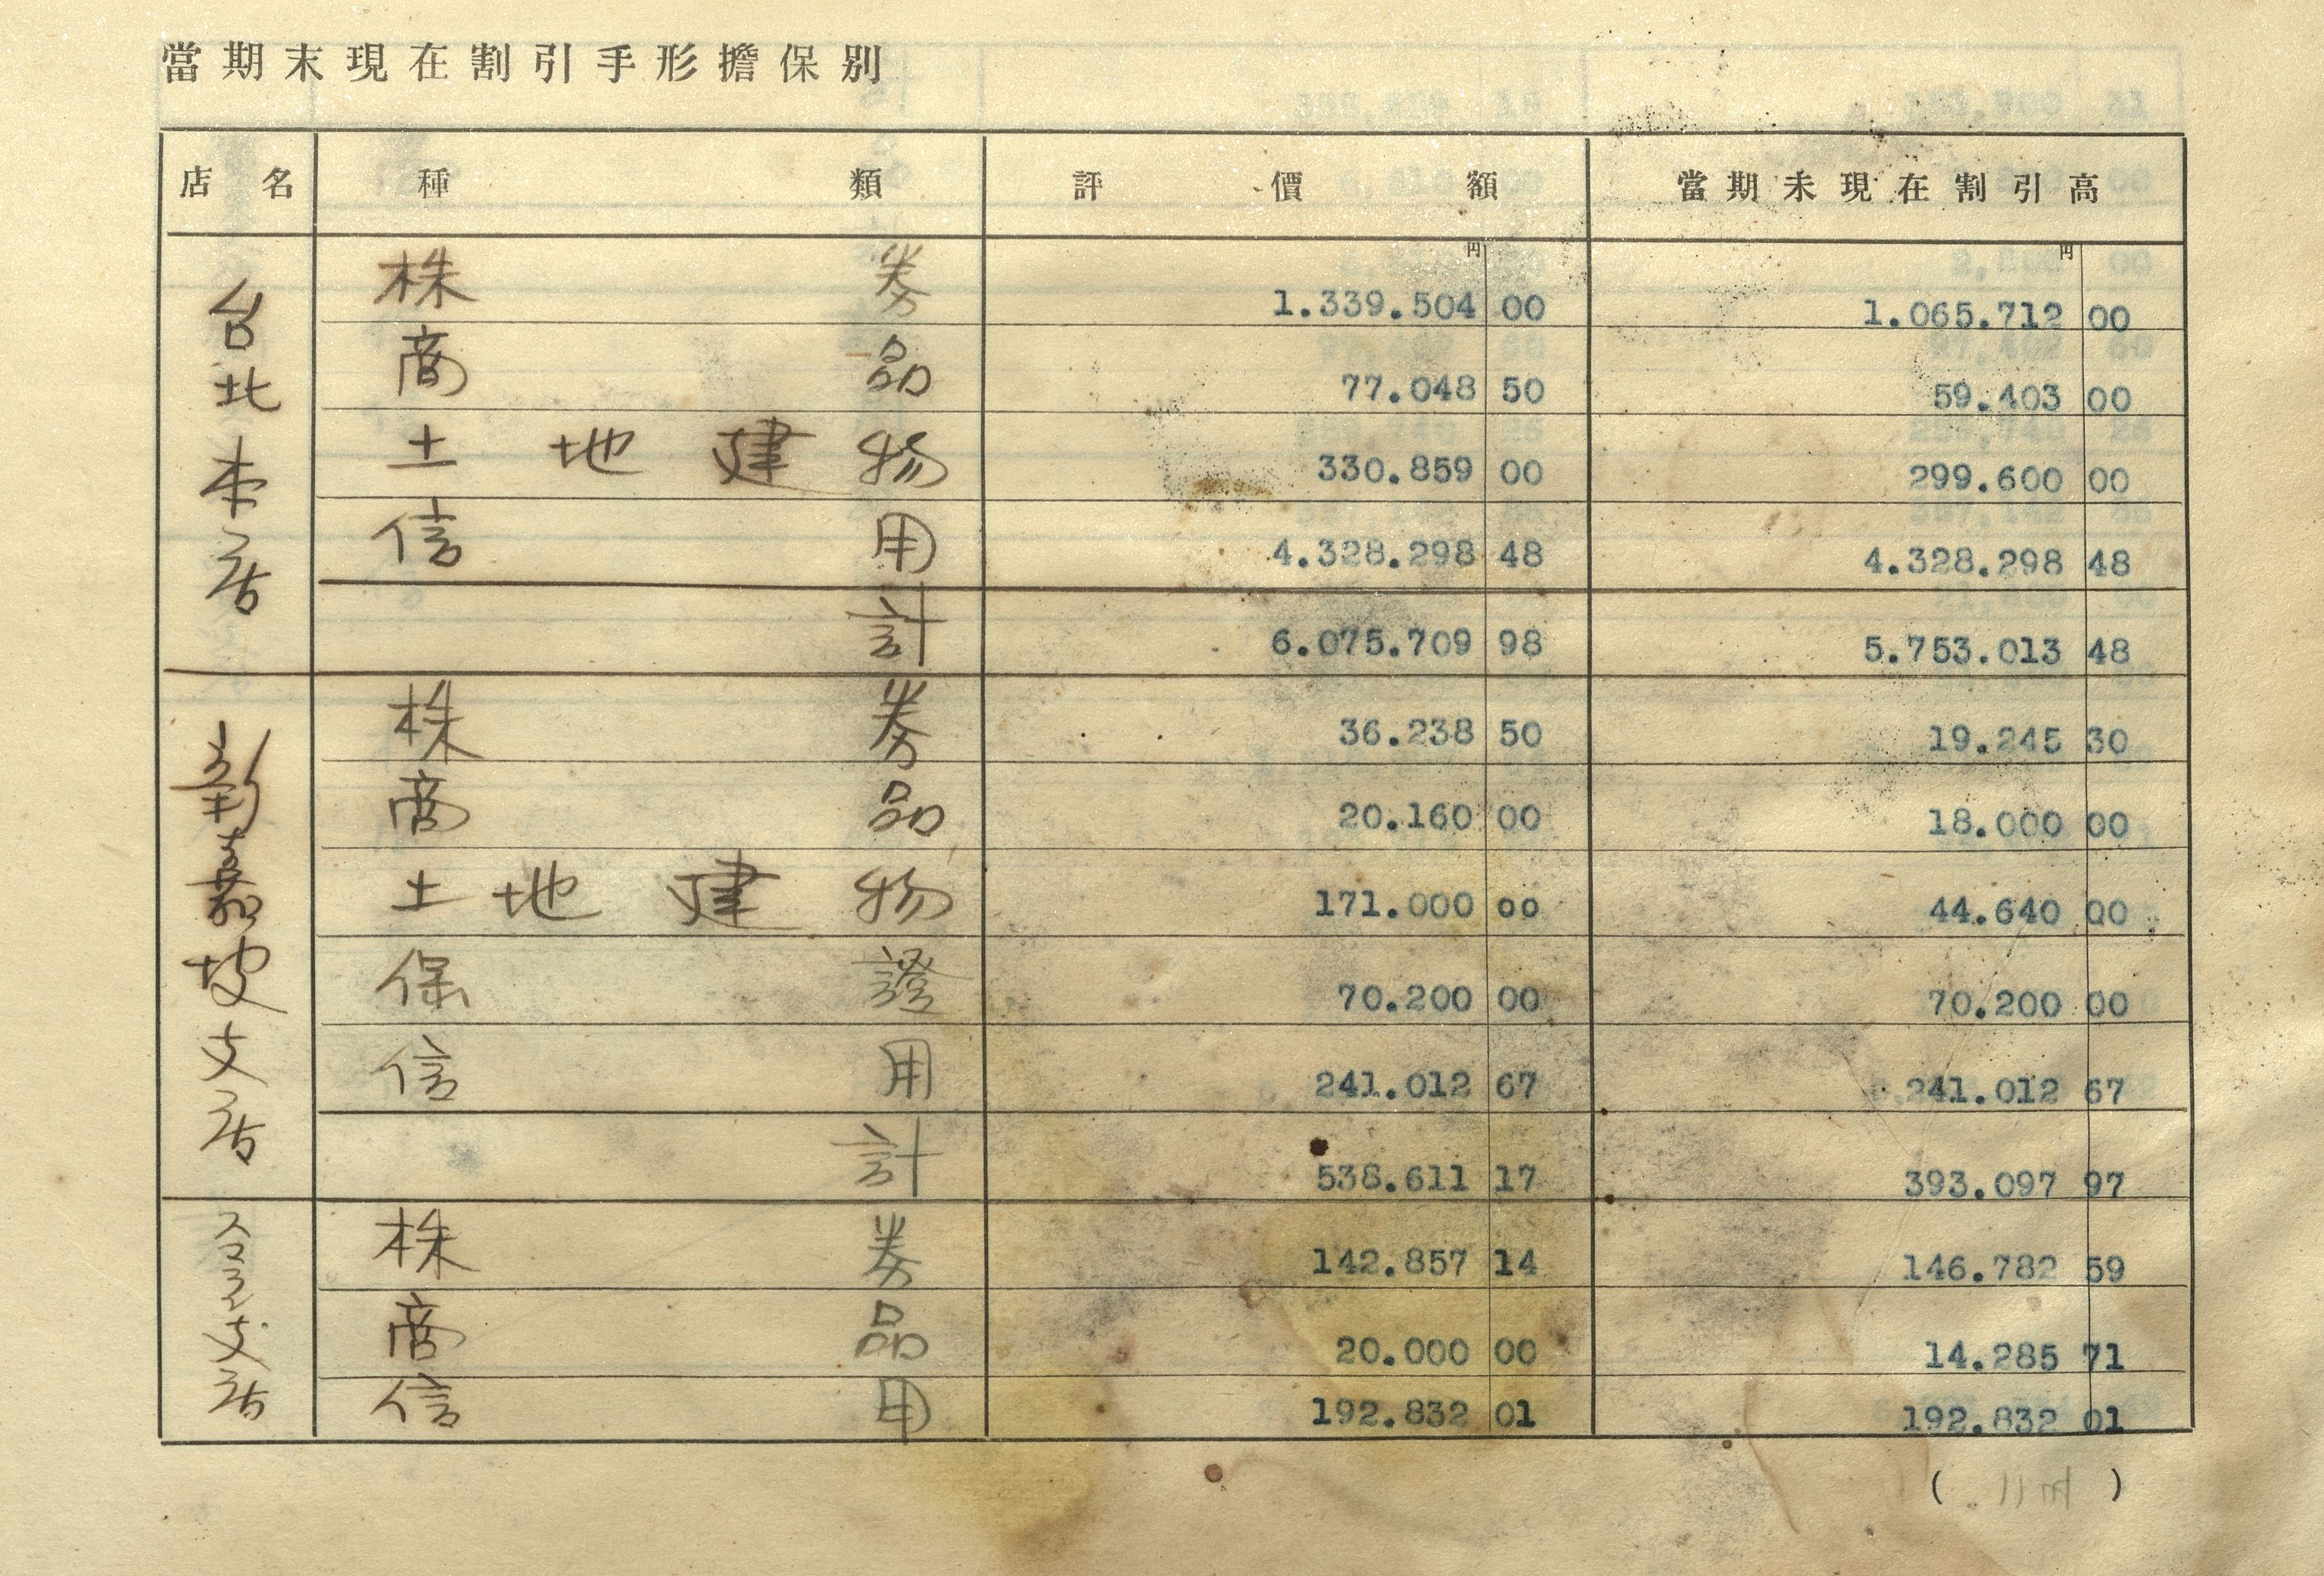 當期末現在割引手形擔保別
店名 種類 評價額 當期未現在割引高
円 円
台北本店 株券 1.339.504 00 1.065.712 00
商品 77.048 50 59.403 00
土地建物 330.859 00 299.600 00
信用 4.328.298 48 4.328.298 48
計 6.075.709 98 5.753.013 48
新嘉坡支店 株券 36.238 50 19.245 30
商品 20.160 00 18.000 00
土地建物 171.000 00 44.640 00
保證 70.200 00 70.200 00
信用 241.012 67 241.012 67
計 538.611 17 393.097 97
スマラン支店 株券 142.857 14 146.782 59
商品 20.000 00 14.285 71
信用 192.832 01 192.832 01
( )